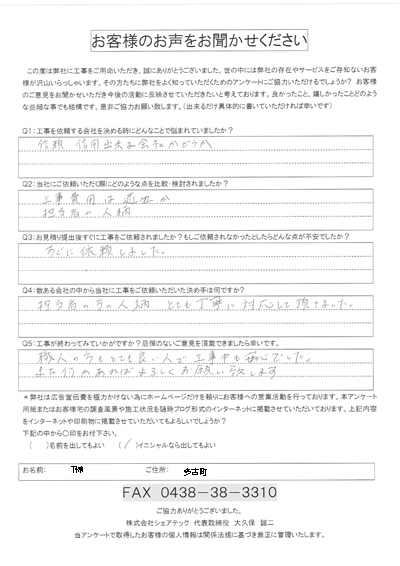 お客様のお声をお聞かせください
この度は弊社に工事をご用命いただき、誠にありがとうございました。世の中には弊社の存在やサービスをご存知ないお客
様が沢山いらっしゃいます。その方たちに弊社をよく知っていただくためのアンケートにご協力いただけるでしょうか? お客
様のご意見をお聞かせいただき今後の活動に反映させていただきたいと考えております。良かったこと、嬉しかったことどのよう
な些細な事でも結構です。是非ご協力お願い致します。(出来るだけ具体的に書いていただければ幸いです)
Q1:工事を依頼する会社を決める時にどんなことで悩まれていましたか?
信頼 信用出来る会社かどうか
Q2:当社にご依頼いただく際にどのような点を比較・検討されましたか?
工事費用は適正か
担当者の人柄
Q3:お見積り提出後すぐに工事をご依頼されましたか?もしご依頼されなかったとしたらどんな点が不安でしたか?
すぐに依頼しました。
Q4:数ある会社の中から当社に工事をご依頼いただいた決め手は何ですか?
担当者の方の人柄 とても丁寧に対応して頂きました。
Q5:工事が終わってみていかがですか?忌憚のないご意見を頂戴できましたら幸いです。
職人の方もとても良い人で工事中も安心でした。
また何かあればよろしくお願い致します
*弊社は広告宣伝費を極力かけない為にホームページだけを頼りにお客様への営業活動を行っております。本アンケート
用紙またはお客様宅の調査風景や施工状況を随時ブログ形式のインターネットに掲載させていただいております。上記内容
をインターネットや印刷物に掲載させていただいてもよろしいでしょうか?
下記の中から〇印をお付下さい。
( )名前を出してもよい (/)イニシャルなら出してもよい
お名前: T様 ご住所: 多古町
FAX 0438-38-3310
ご協力ありがとうございました。
株式会社シェアテック 代表取締役 大久保 誠二
当アンケートで取得したお客様の個人情報は関係法規に基づき厳正に管理いたします。